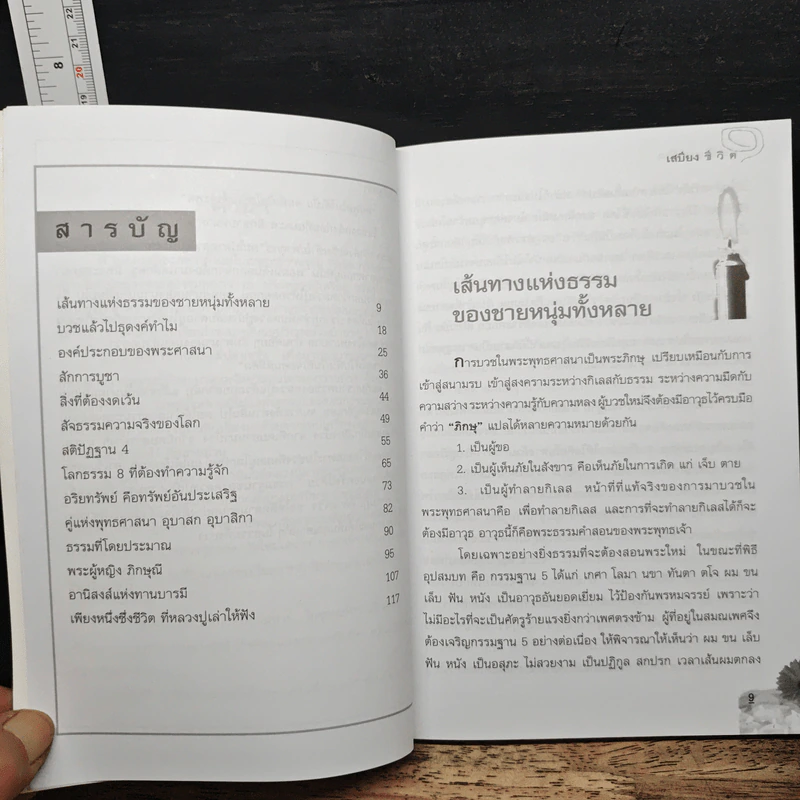 สารบัญ
เส้นทางแห่งธรรมของชายหนุ่มทั้งหลาย 9
บวชแล้วไปธุดงค์ทำไม 18
องค์ประกอบของพระศาสนา 25
สักการบูชา 36
สิ่งที่ต้องงดเว้น 44
สัจธรรมความจริงของโลก 49
สติปัฏฐาน 4 55
โลกธรรม 8 ที่ต้องทำความรู้จัก 65
อริยทรัพย์ คือทรัพย์อันประเสริฐ 73
คู่แห่งพุทธศาสนา อุบาสก อุบาสิกา 82
ธรรมที่โดยประมาณ 90
พระผู้หญิง ภิกษุณี 95
อานิสงส์แห่งทานบารมี 107
เพียงหนึ่งซึ่งชีวิต ที่หลวงปู่เล่าให้ฟัง 117
เสบียง ชีวิต
เส้นทางแห่งธรรม
ของชายหนุ่มทั้งหลาย
การบวชในพระพุทธศาสนาเป็นพระภิกษุ เปรียบเหมือนกับการ
เข้าสู่สนามรบ เข้าสู่สงครามระหว่างกิเลสกับธรรม ระหว่างความมืดกับ
ความสว่าง ระหว่างความรู้กับความหลง ผู้บวชใหม่จึงต้องมีอาวุธไว้ครบมือ
คำว่า “ภิกษุ” แปลได้หลายความหมายด้วยกัน
1. เป็นผู้ขอ
2. เป็นผู้เห็นภัยในสังขาร คือเห็นภัยในการเกิด แก่ เจ็บ ตาย
3. เป็นผู้ทำลายกิเลส หน้าที่ที่แท้จริงของการมาบวชใน
พระพุทธศาสนาคือ เพื่อทำลายกิเลส และการที่จะทำลายกิเลสได้ก็จะ
ต้องมีอาวุธ อาวุธนี้ก็คือพระธรรมคำสอนของพระพุทธเจ้า
โดยเฉพาะอย่างยิ่งธรรมที่จะต้องสอนพระใหม่ ในขณะที่พิธี
อุปสมบท คือ กรรมฐาน 5 ได้แก่ เกศา โลมา นขา ทันตา ตโจ ผม ขน
เล็บ ฟัน หนัง เป็นอาวุธอันยอดเยี่ยม ไว้ป้องกันพรหมจรรย์ เพราะว่า
ไม่มีอะไรที่จะเป็นศัตรูร้ายแรงยิ่งกว่าเพศตรงข้าม ผู้ที่อยู่ในสมณเพศจึง
ต้องเจริญกรรมฐาน 5 อย่างต่อเนื่อง ให้พิจารณาให้เห็นว่า ผม ขน เล็บ
ฟัน หนัง เป็นอสุภะ ไม่สวยงาม เป็นปฏิกูล สกปรก เวลาเส้นผมตกลง
9
8
22
21
20
19